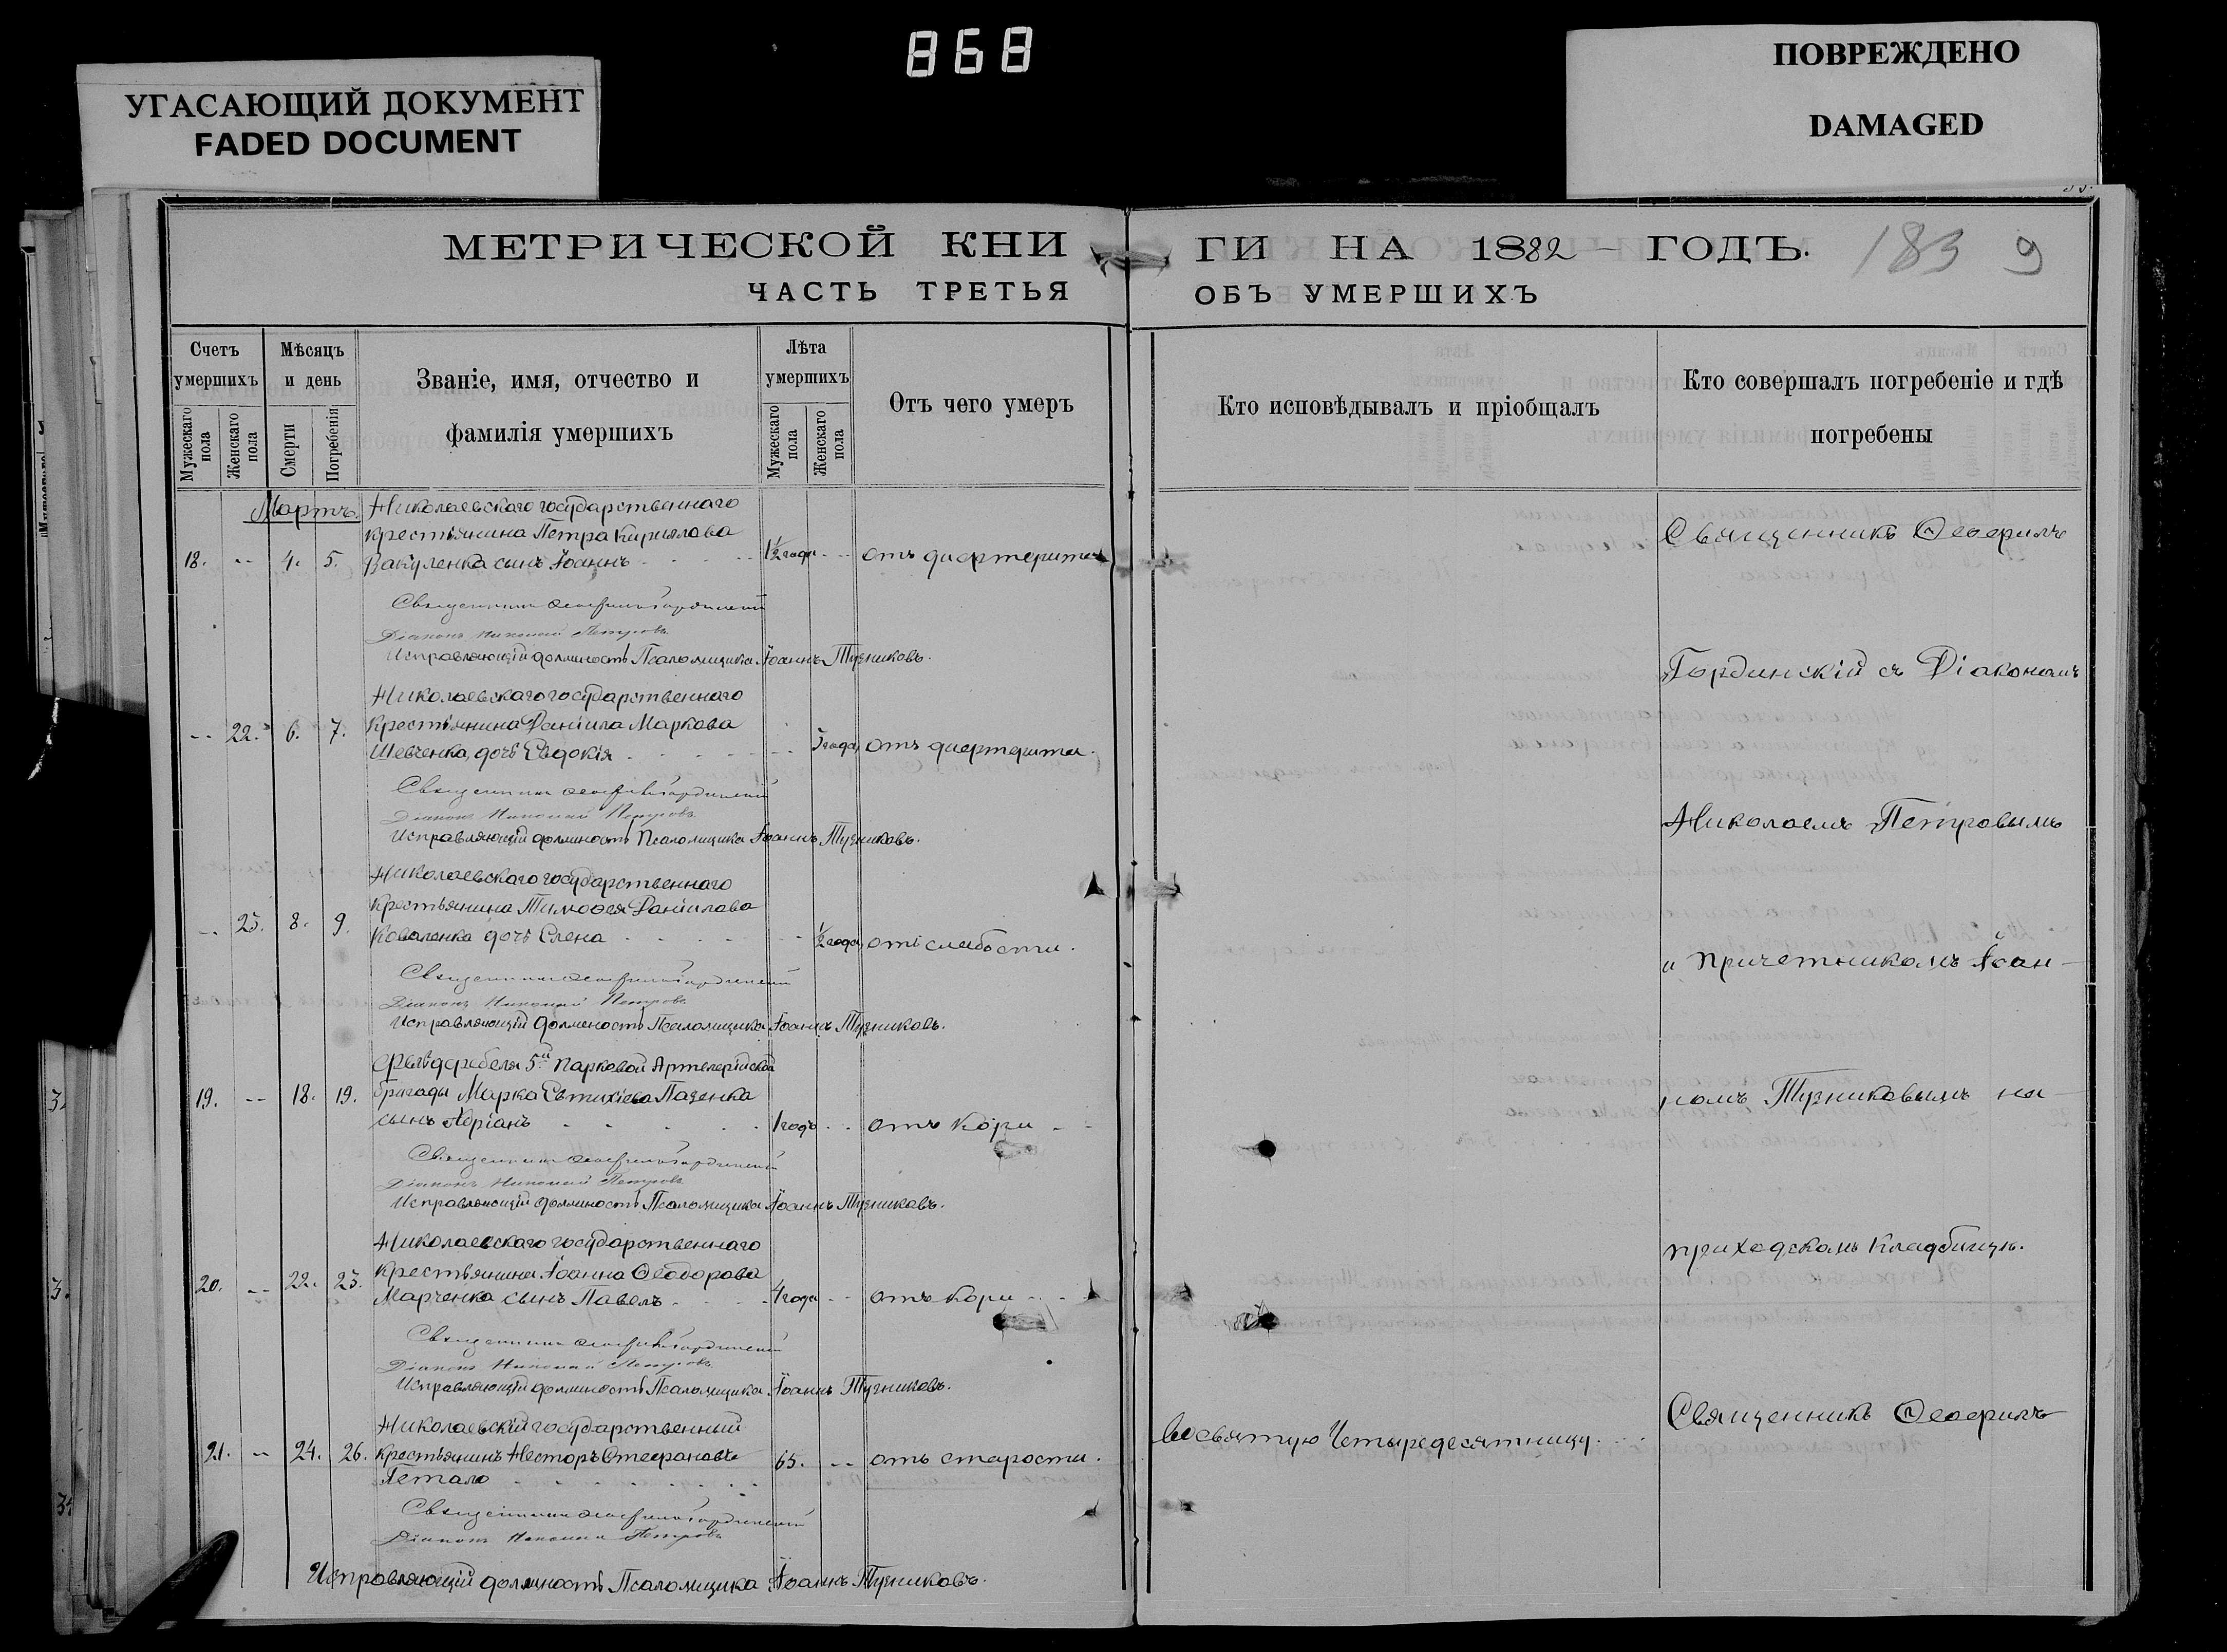 868
УГАСАЮЩИЙ ДОКУМЕНТ
FADED DOCUMENT
ПОВРЕЖДЕНО
DAMAGED
МЕТРИЧЕСКОЙ КНИ
ГИ НА 1882 — ГОДЪ.
183 9
ЧАСТЬ ТРЕТЬЯ
ОБЪ УМЕРШИХЪ
Счетъ умершихъ
Мужескаго пола
Женскаго пола
Мѣсяцъ и день
Смерти
Погребенія
Званіе, имя, отчество и
фамилія умершихъ
Лѣта умершихъ
Мужескаго пола
Женскаго пола
Отъ чего умеръ
Кто исповѣдывалъ и пріобщалъ
Кто совершалъ погребеніе и гдѣ
погребены
Мартъ.
Николаевскаго государственнаго
крестьянина Петра Кирилова
18. -- 4. 5. Вакуленка сынъ Іоаннъ 1½ года -- отъ дифтерита
Священникъ Ѳеофилъ Гординскій
Діаконъ Николай Петровъ
Исправляющій должность Псаломщика Іоаннъ Тузниковъ.
Николаевскаго государственнаго
-- 22. 6. 7. Крестьянина Даніила Маркова
Шевченка, дочь Евдокія -- 3 года отъ дифтерита.
Священникъ Ѳеофилъ Гординскій
Діаконъ Николай Петровъ
Исправляющій должность Псаломщика Іоаннъ Тузниковъ.
Николаевскаго государственнаго
-- 23. 8. 9. Крестьянина Тимоѳея Даніилова
Коваленка дочь Елена -- ½ года отъ слабости.
Священникъ Ѳеофилъ Гординскій
Діаконъ Николай Петровъ
Исправляющій должность Псаломщика Іоаннъ Тузниковъ.
Фельдфебеля 5й Парковой Артелерійской
19. -- 18. 19. бригады Марка Евтихіева Пазенка
сынъ Адріанъ 1 годъ -- отъ Кори --
Священникъ Ѳеофилъ Гординскій
Діаконъ Николай Петровъ
Исправляющій должность Псаломщика Іоаннъ Тузниковъ.
Николаевскаго государственнаго
20. -- 22. 23. Крестьянина Іоанна Ѳеодорова
Марченка сынъ Павелъ 4 года -- отъ Кори --
Священникъ Ѳеофилъ Гординскій
Діаконъ Николай Петровъ
Исправляющій должность Псаломщика Іоаннъ Тузниковъ.
Николаевскій государственный
21. -- 24. 26. Крестьянинъ Несторъ Стефановъ 65. -- отъ старости.
Петало
Священникъ Ѳеофилъ Гординскій
Діаконъ Николай Петровъ
Исправляющій должность Псаломщика Іоаннъ Тузниковъ.
Во святую Четыредесятницу.
Священникъ Ѳеофилъ
Гординскій съ Діакономъ
Николаемъ Петровымъ
и причетникомъ Іоан-
номъ Тузниковымъ на
приходскомъ кладбищѣ.
Священникъ Ѳеофилъ